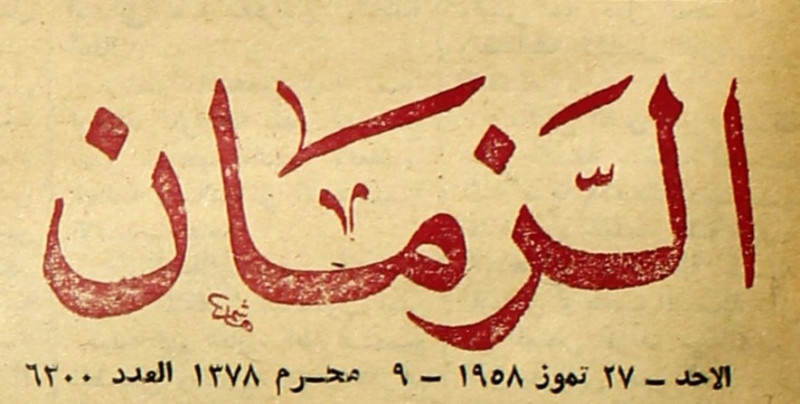 الزّمان
الاحد – ٢٧ تموز ١٩٥٨ – ٩ محرم ١٣٧٨ العدد ٦٣٠٠